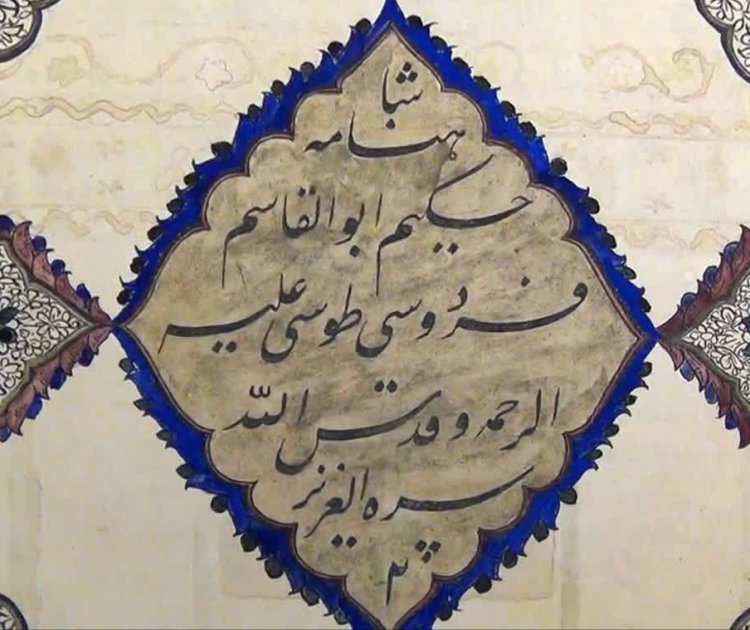 شا
هنامه
حکیم ابوالقاسم
فردوسی طوسی علیه
الرحمه و قدس الله
سره العزیز
۲